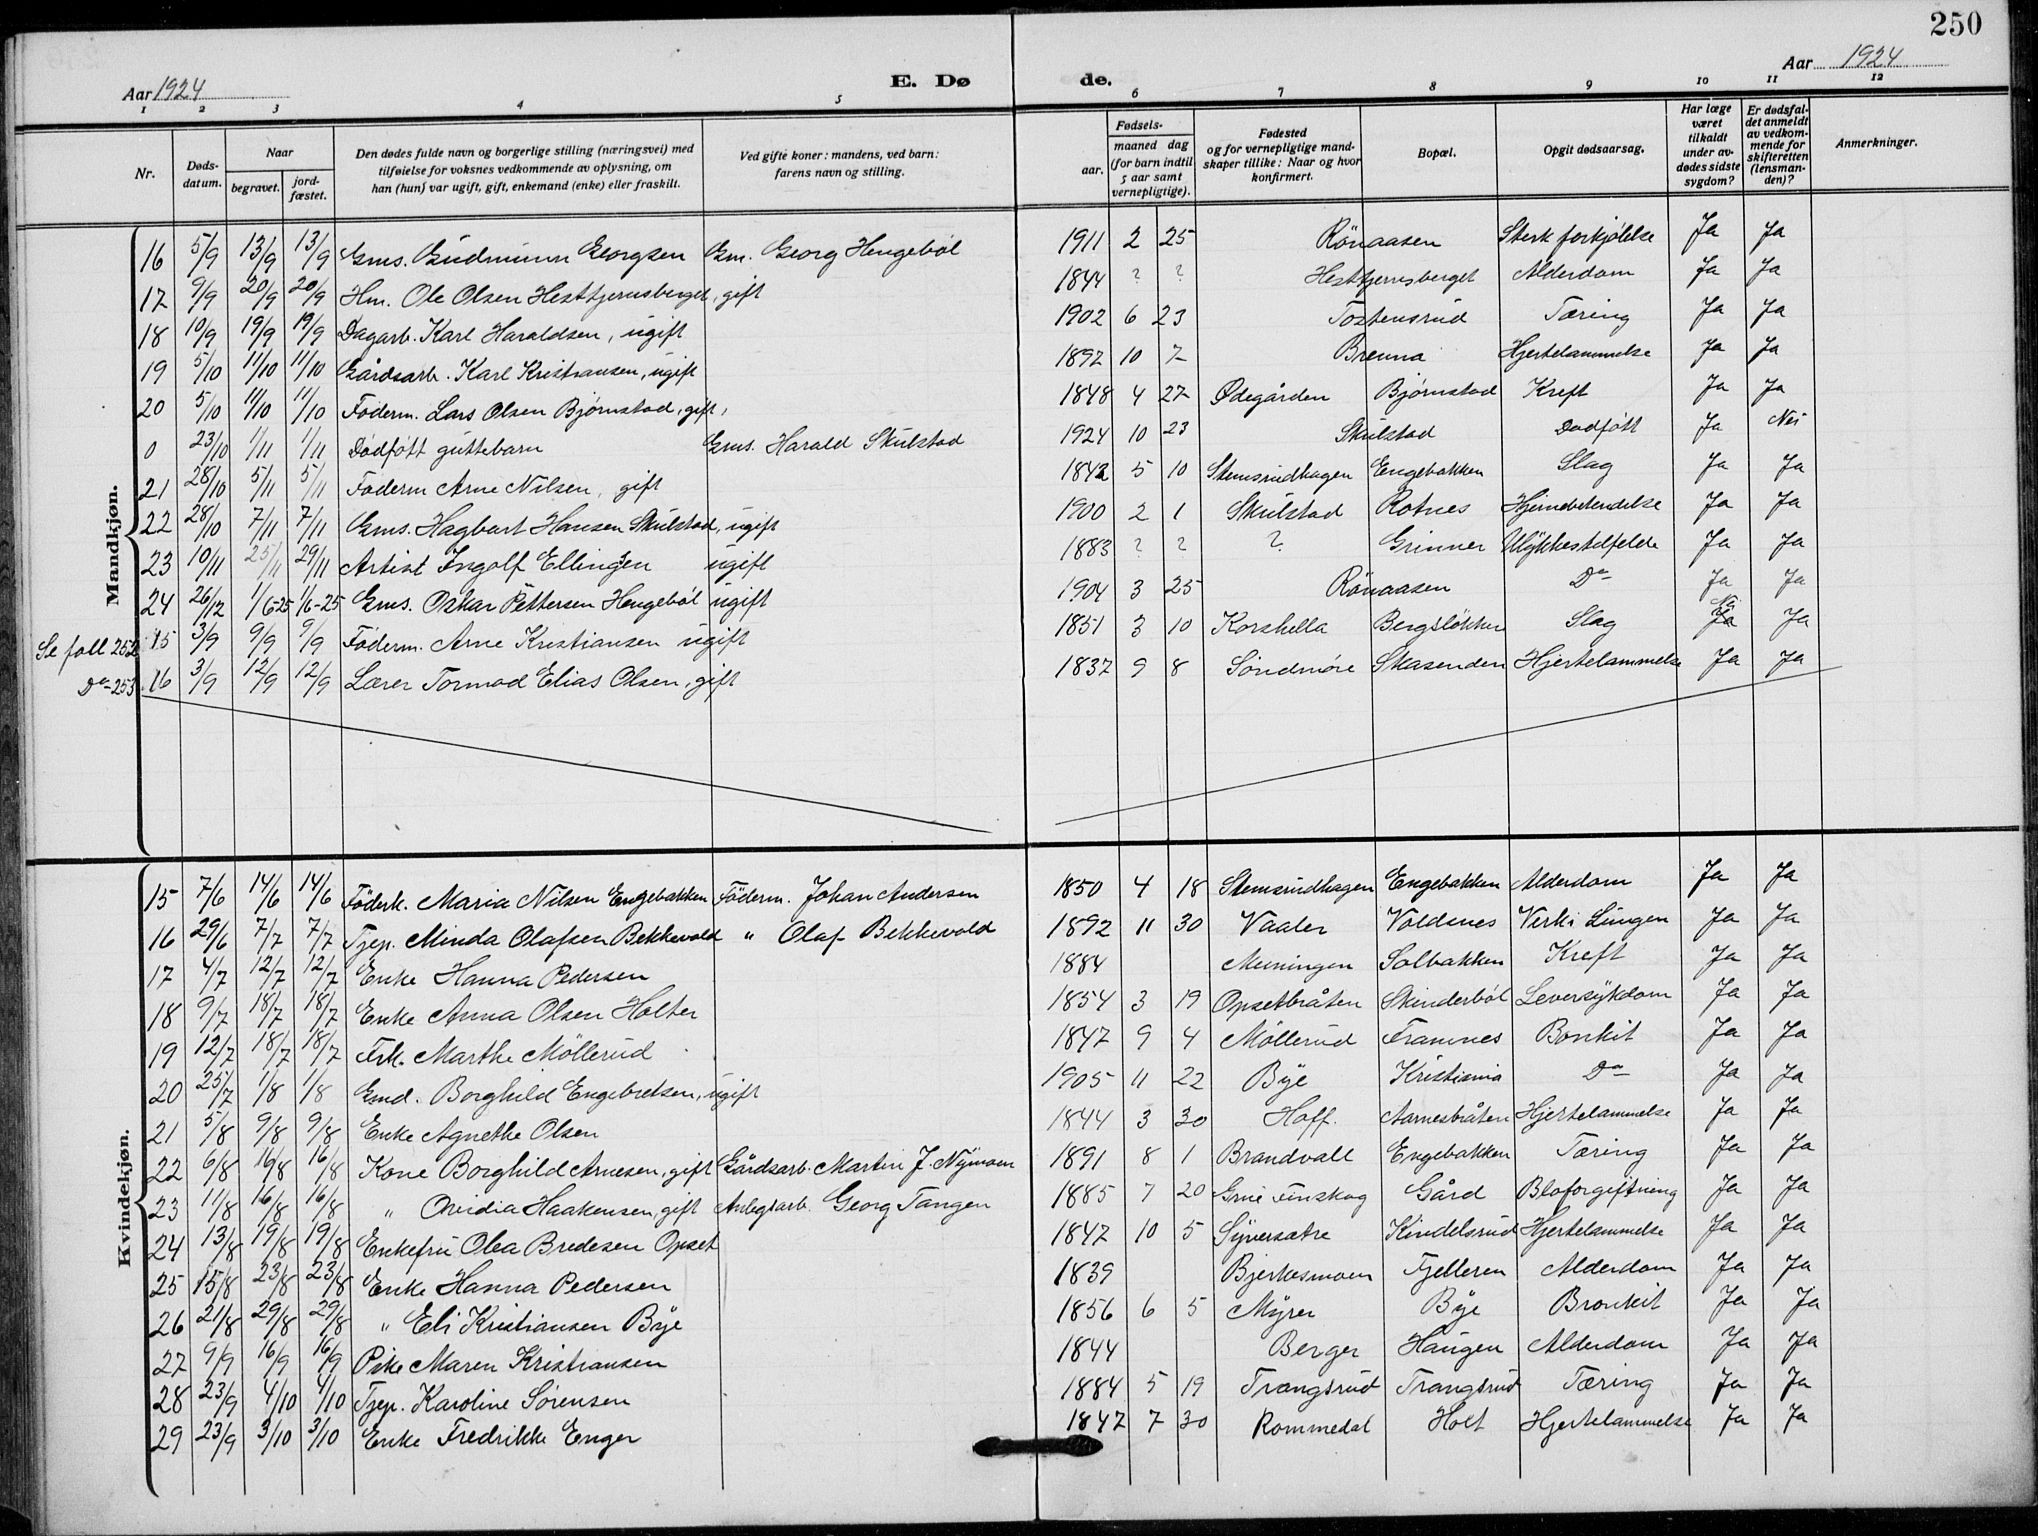 250
Aar 1924
E. Dø de.
Aar 1924
1 2 3 4 5 6 7 8 9 10 11 12
Nr.
Døds-
datum.
Naar
begravet.
jord-
fæstet.
Den dødes fulde navn og borgerlige stilling (næringsvei) med
tilføielse for voksnes vedkommende av oplysning, om
han (hun) var ugift, gift, enkemand (enke) eller fraskilt.
Ved gifte koner: mandens, ved barn:
farens navn og stilling.
Fødsels-
aar.
maaned dag
(for barn indtil
5 aar samt
vernepligtige).
Fødested
og for vernepligtige mand-
skaper tillike: Naar og hvor
konfirmert.
Bopæl.
Opgit dødsaarsag.
Har læge
været
tilkaldt
under av-
dødes sidste
sygdom?
Er dødsfal-
det anmeldt
av vedkom-
mende for
skifteretten
(lensman-
den)?
Anmerkninger.
Mandkjøn.
16 5/9 13/9 13/9 Gms. Gudmunn Georgsen Gm. Georg Hengebøl 1911 2 25 Rönaasen Sterk forkjølelse Ja Ja
17 9/9 20/9 20/9 Hm. Ole Olsen Hesttjernsberget, gift 1844 ? ? Hesttjernsberget Alderdom Ja Ja
18 10/9 19/9 19/9 Dagarb. Karl Haraldsen, ugift 1902 6 23 Tostensrud Tæring Ja Ja
19 5/10 11/10 11/10 Gårdsarb. Karl Kristiansen, ugift 1892 10 7 Brenna Hjertelammelse Ja Ja
20 5/10 11/10 11/10 Föderm. Lars Olsen Bjørnstad, gift, 1848 4 27 Ødegården Bjørnstad Kreft Ja Ja
0 23/10 1/11 1/11 Dødfött guttebarn Gms. Harald Skulstad 1924 10 23 Skulstad Dødfött Ja Nei
21 28/10 5/11 5/11 Föderm Arne Nilsen, gift 1842 5 10 Stemsrudhagen Engebakken Slag Ja Ja
22 28/10 7/11 7/11 Gms. Hagbart Hansen Skulstad, ugift 1900 2 1 Skulstad Rotnes Hjernebetendelse Ja Ja
23 10/11 25/11 29/11 Artist Ingolf Ellingsen ugift 1883 ? ? ? Grinner Ulykkestilfelde Ja Ja
24 26/12 1/6-25 1/6-25 Gms. Oskar Pettersen Hengebøl ugift 1904 3 25 Rönaasen Do Ja Ja
Se foll 252 15 3/9 9/9 9/9 Föderm. Arne Kristiansen ugift 1851 3 10 Korshella Bergsløkken Slag Nei Ja Ja
Do-253 16 3/9 12/9 12/9 Lærer Tormod Elias Olsen, gift 1837 9 8 Söndmöre Skasenden Hjertelammelse Ja Ja
Kvindekjøn.
15 7/6 14/6 14/6 Föderk. Maria Nilsen Engebakken Föderm. Johan Andersen 1850 4 18 Stemsrudhagen Engebakken Alderdom Ja Ja
16 29/6 7/7 7/7 Tjep. Minda Olafsen Bekkevold " Olaf Bekkevold 1892 11 30 Vaaler Voldsnes Verk i Lungen Ja Ja
17 4/7 12/7 12/7 Enke Hanna Pedersen 1884 Meiningen Solbakken Kreft Ja Ja
18 9/7 18/7 18/7 Enke Anna Olsen Holter 1854 3 19 Opsetbråten Skinderböl Leversykdom Ja Ja
19 12/7 18/7 18/7 Frk. Marthe Möllerud 1847 9 4 Möllerud Framnes Bonkit Ja Ja
20 25/7 1/8 1/8 Gmd. Borghild Engebretsen, ugift 1905 11 22 Bye Kristiania Do Ja Ja
21 5/8 9/8 9/8 Enke Agnethe Olsen 1844 3 30 Hoff. Aarnesbråten Hjertelammelse Ja Ja
22 6/8 16/8 16/8 Kone Borghild Arnesen, gift Gårdsarb. Martin J. Nymoen 1891 8 1 Brandvall Engebakken Tæring Ja Ja
23 11/8 16/8 16/8 " Ovidia Haakensen, gift Anlegsarb. Georg Tangen 1885 7 20 Grue Finskog Gård Bloforgiftning Ja Ja
24 13/8 19/8 19/8 Enkefru Olea Bredesen Opset 1847 10 5 Syversætre Kindelsrud Hjertelammelse Ja Ja
25 15/8 23/8 23/8 Enke Hanna Pedersen 1839 Bjerkesmoen Fjelleren Alderdom Ja Ja
26 21/8 29/8 29/8 " Eli Kristiansen Bye 1856 6 5 Myrer Bye Bronkit Ja Ja
27 9/9 16/9 16/9 Pike Maren Kristiansen 1844 Berger Haugen Alderdom Ja Ja
28 23/9 4/10 4/10 Tjep. Karoline Sörensen 1884 5 19 Trangsrud Trangsrud Tæring Ja Ja
29 23/9 3/10 3/10 Enke Fredrikke Enger 1847 7 30 Rommedal Holt Hjertelammelse Ja Ja